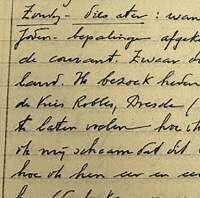 Zondg - dies ater: wan
Joden-bepalingen afgek
de courant. Zwaar
land. Ik bezoek heden
de Vries Robles, Dresde (
te laten voelen hoe ik
ik mij schaam dat dit
hoe oh hen eer en ee